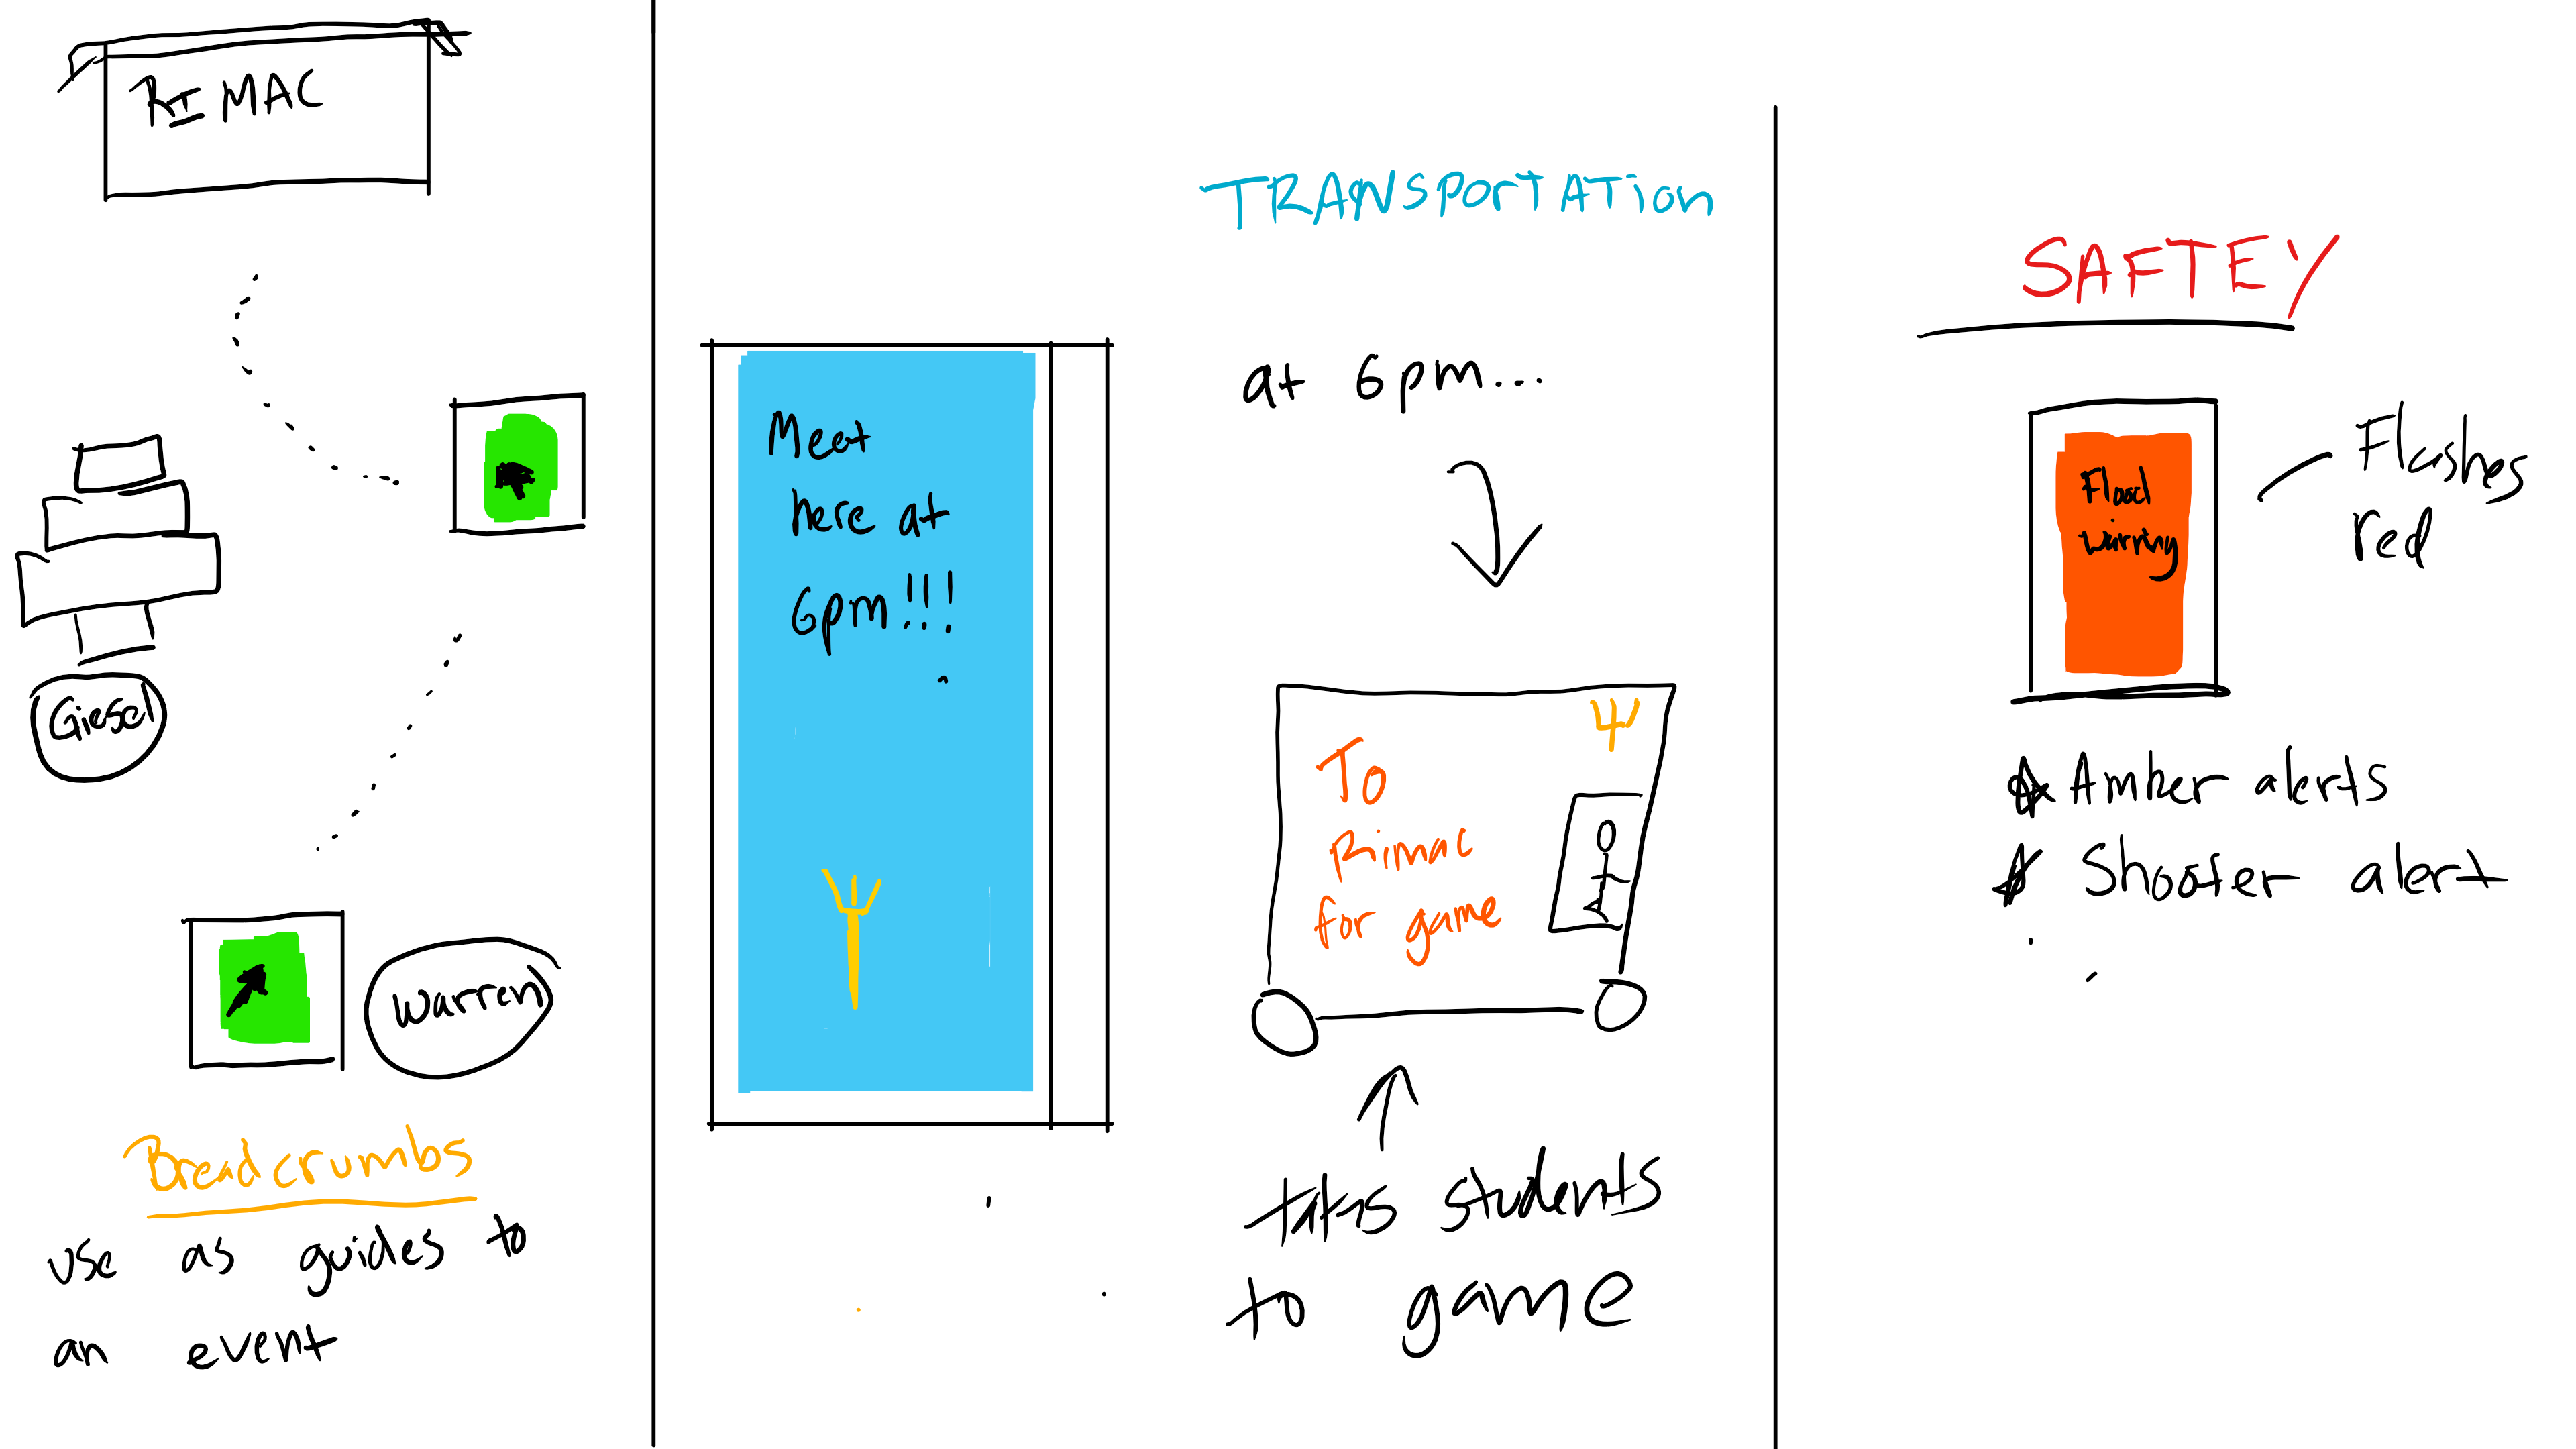 RIMAC
Giesel
Warren
Breadcrumbs
use as guides to
an event
TRANSPORTATION
Meet
here at
6pm!!!
at 6pm...
To
Rimac
for game
takes students
to game
SAFTEY
Flood
Warning
Flashes
red
Amber alerts
Shooter alert